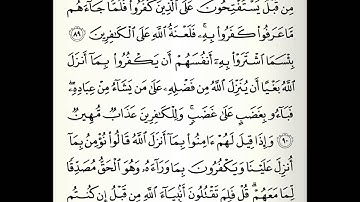 مِن قَبْلُ يَسْتَفْتِحُونَ عَلَى ٱلَّذِينَ كَفَرُوا۟ فَلَمَّا جَآءَهُم
مَّا عَرَفُوا۟ كَفَرُوا۟ بِهِۦ فَلَعْنَةُ ٱللَّهِ عَلَى ٱلْكَٰفِرِينَ ٨٩
بِئْسَمَا ٱشْتَرَوْا۟ بِهِۦٓ أَنفُسَهُمْ أَن يَكْفُرُوا۟ بِمَآ أَنزَلَ
ٱللَّهُ بَغْيًا أَن يُنَزِّلَ ٱللَّهُ مِن فَضْلِهِۦ عَلَىٰ مَن يَشَآءُ مِنْ عِبَادِهِۦ
فَبَآءُو بِغَضَبٍ عَلَىٰ غَضَبٍ وَلِلْكَٰفِرِينَ عَذَابٌ مُّهِينٌ
٩٠ وَإِذَا قِيلَ لَهُمْ ءَامِنُوا۟ بِمَآ أَنزَلَ ٱللَّهُ قَالُوا۟ نُؤْمِنُ بِمَآ
أُنزِلَ عَلَيْنَا وَيَكْفُرُونَ بِمَا وَرَآءَهُۥ وَهُوَ ٱلْحَقُّ مُصَدِّقًا
لِّمَا مَعَهُمْ قُلْ فَلِمَ تَقْتُلُونَ أَنۢبِيَآءَ ٱللَّهِ مِن قَبْلُ إِن كُنتُم